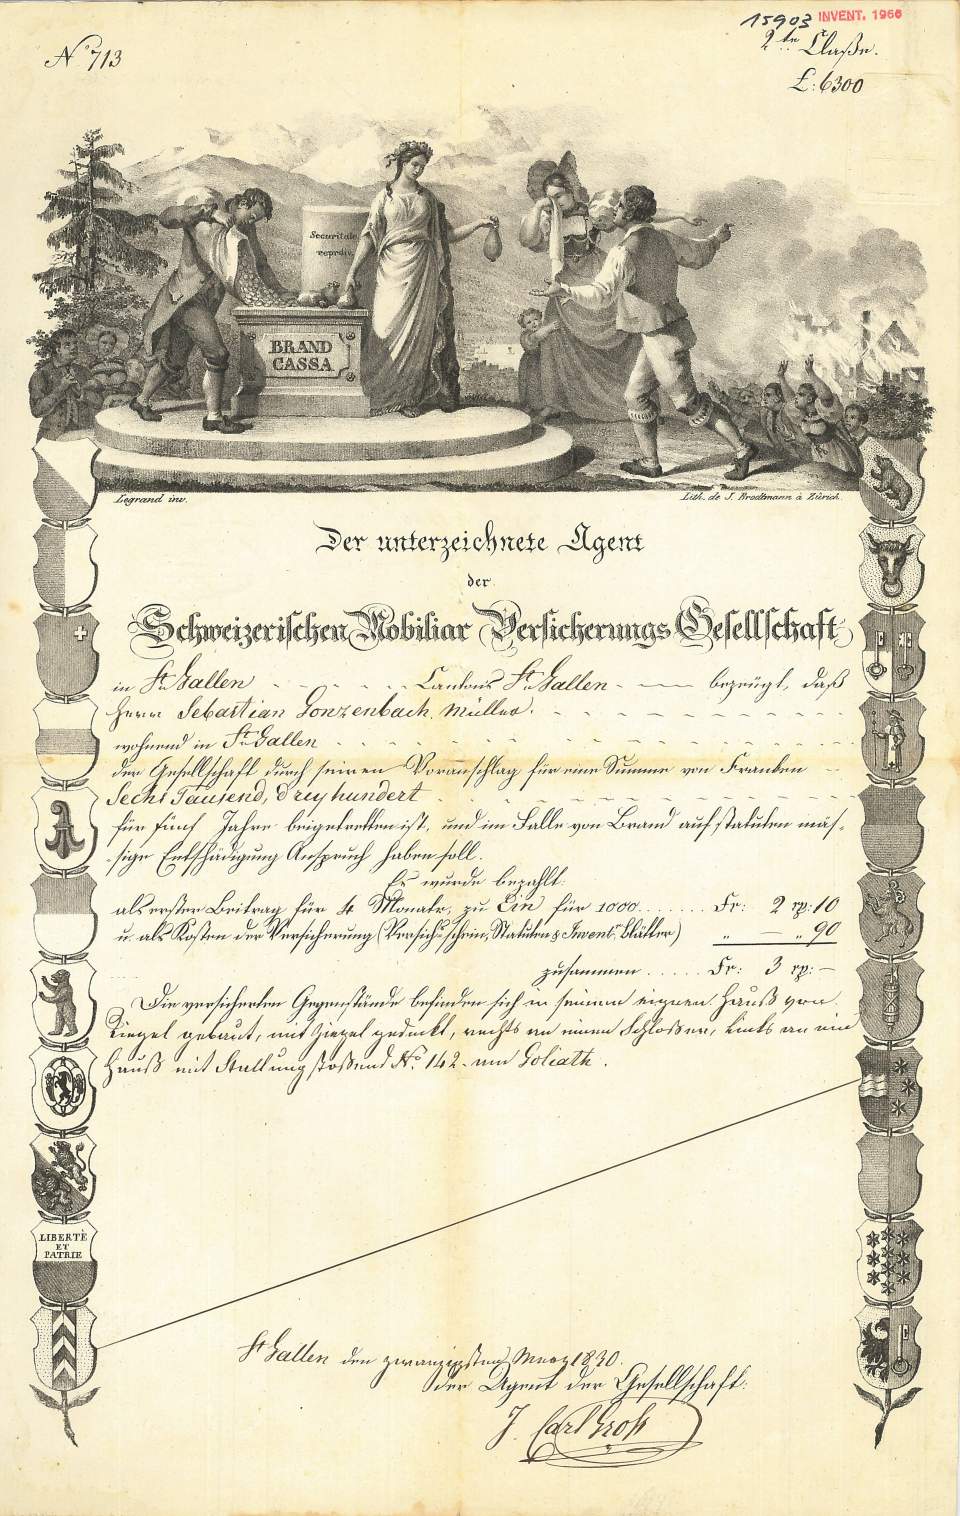 15903 INVENT. 1966
No 713
2te Claße.
L: 6300
Securitate
reprdiv.
BRAND
CASSA
Legrand inv.
Lith. de J. Brodtmann à Zürich
Der unterzeichnete Agent
der
Schweizerischen Mobiliar Versicherungs Gesellschaft
in St Gallen Cantons St Gallen bezeugt, daß
Herr Sebastian Gonzenbach Müller.
wohnend in St Gallen
der Gesellschaft durch seinen Voranschlag für eine Summe von Franken
Sechs Tausend, dreyhundert
für fünf Jahre beigetretten ist, und im Falle von Brand auf statuten mäs-
sige Entschädigung Anspruch haben soll.
Es wurde bezahlt:
als erster Beitrag für 4 Monate, zu Ein für 1000 Fr: 2 rp: 10
u. als Kosten der Versicherung (Versichs schein, Statuten & Invents Blätter) " — " 90
zusammen Fr: 3 rp: —
Die versicherten Gegenstände befinden sich in seinem eignen Hauß von
Riegel gebaut, mit Ziegel gedeckt, rechts an einen Schloßer, links an ein
Hauß mit Stallung stoßend No. 142. am Goliath.
LIBERTÈ
ET
PATRIE
St Gallen den zwanzigsten Merz 1830.
Der Agent der Gesellschaft:
J. Carl Groß